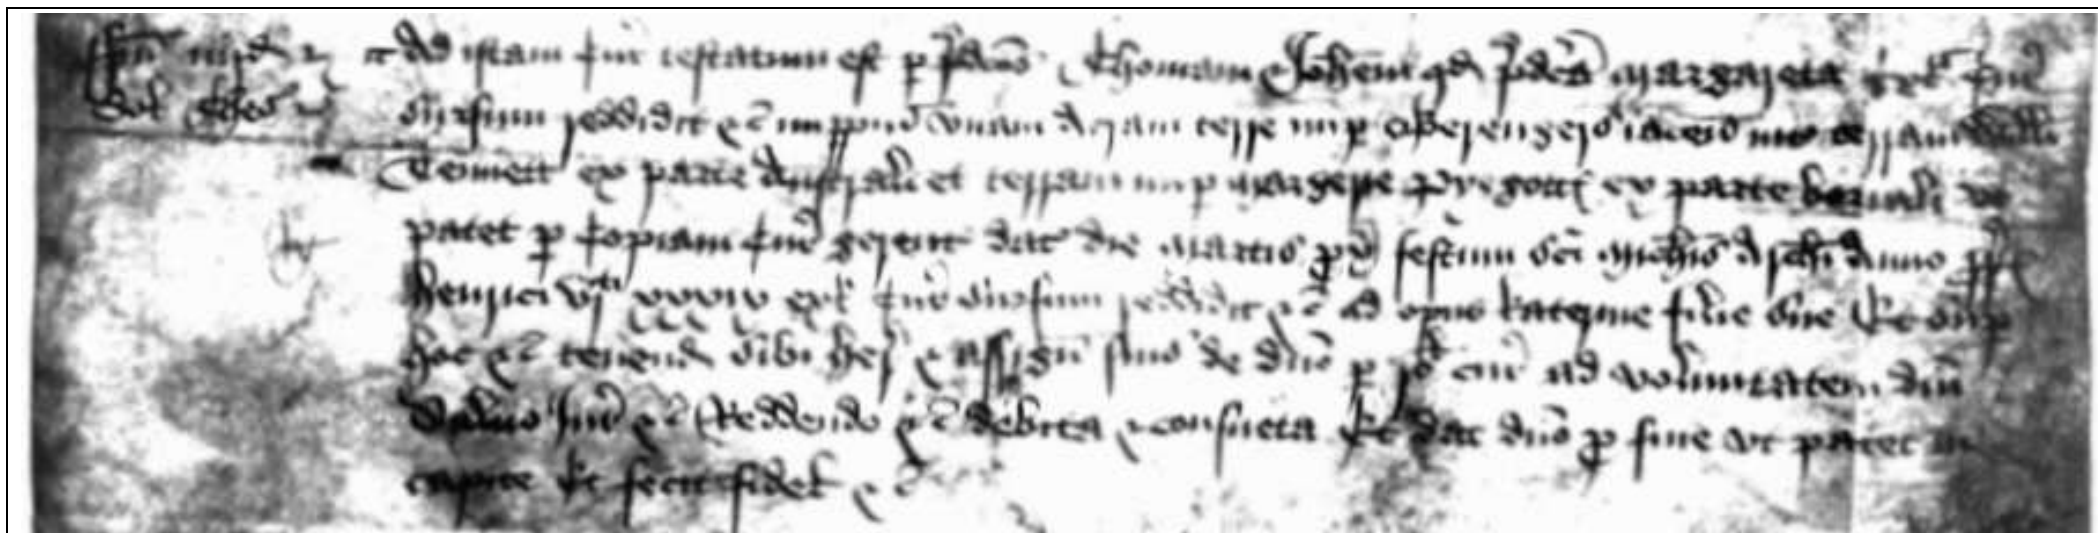 ffin iiij d
Ad istam Cur testatum est p pdcos Thomam & Johem qd pdca Margareta ext Cur
sursum reddidit &c in man dni unam acram terre nup Berengers iacent int terram
Tenent ex parte Australi et terram nup Margerie ex parte boriali ut
patet p Copiam Cur gerent dat die Martis px p festum sci Michis Archi Anno rr
henrici vjti xxxiv ext Cur sursum reddidit &c ad opus Katerine filie sue Et sup
hoc &c tenend sibi her & assign suis de dno p rot cur ad voluntatem dni
Salvo Jur &c Reddendo &c debita & consueta Et dat dno p fine ut patet in
capite Et fecit fidel &c